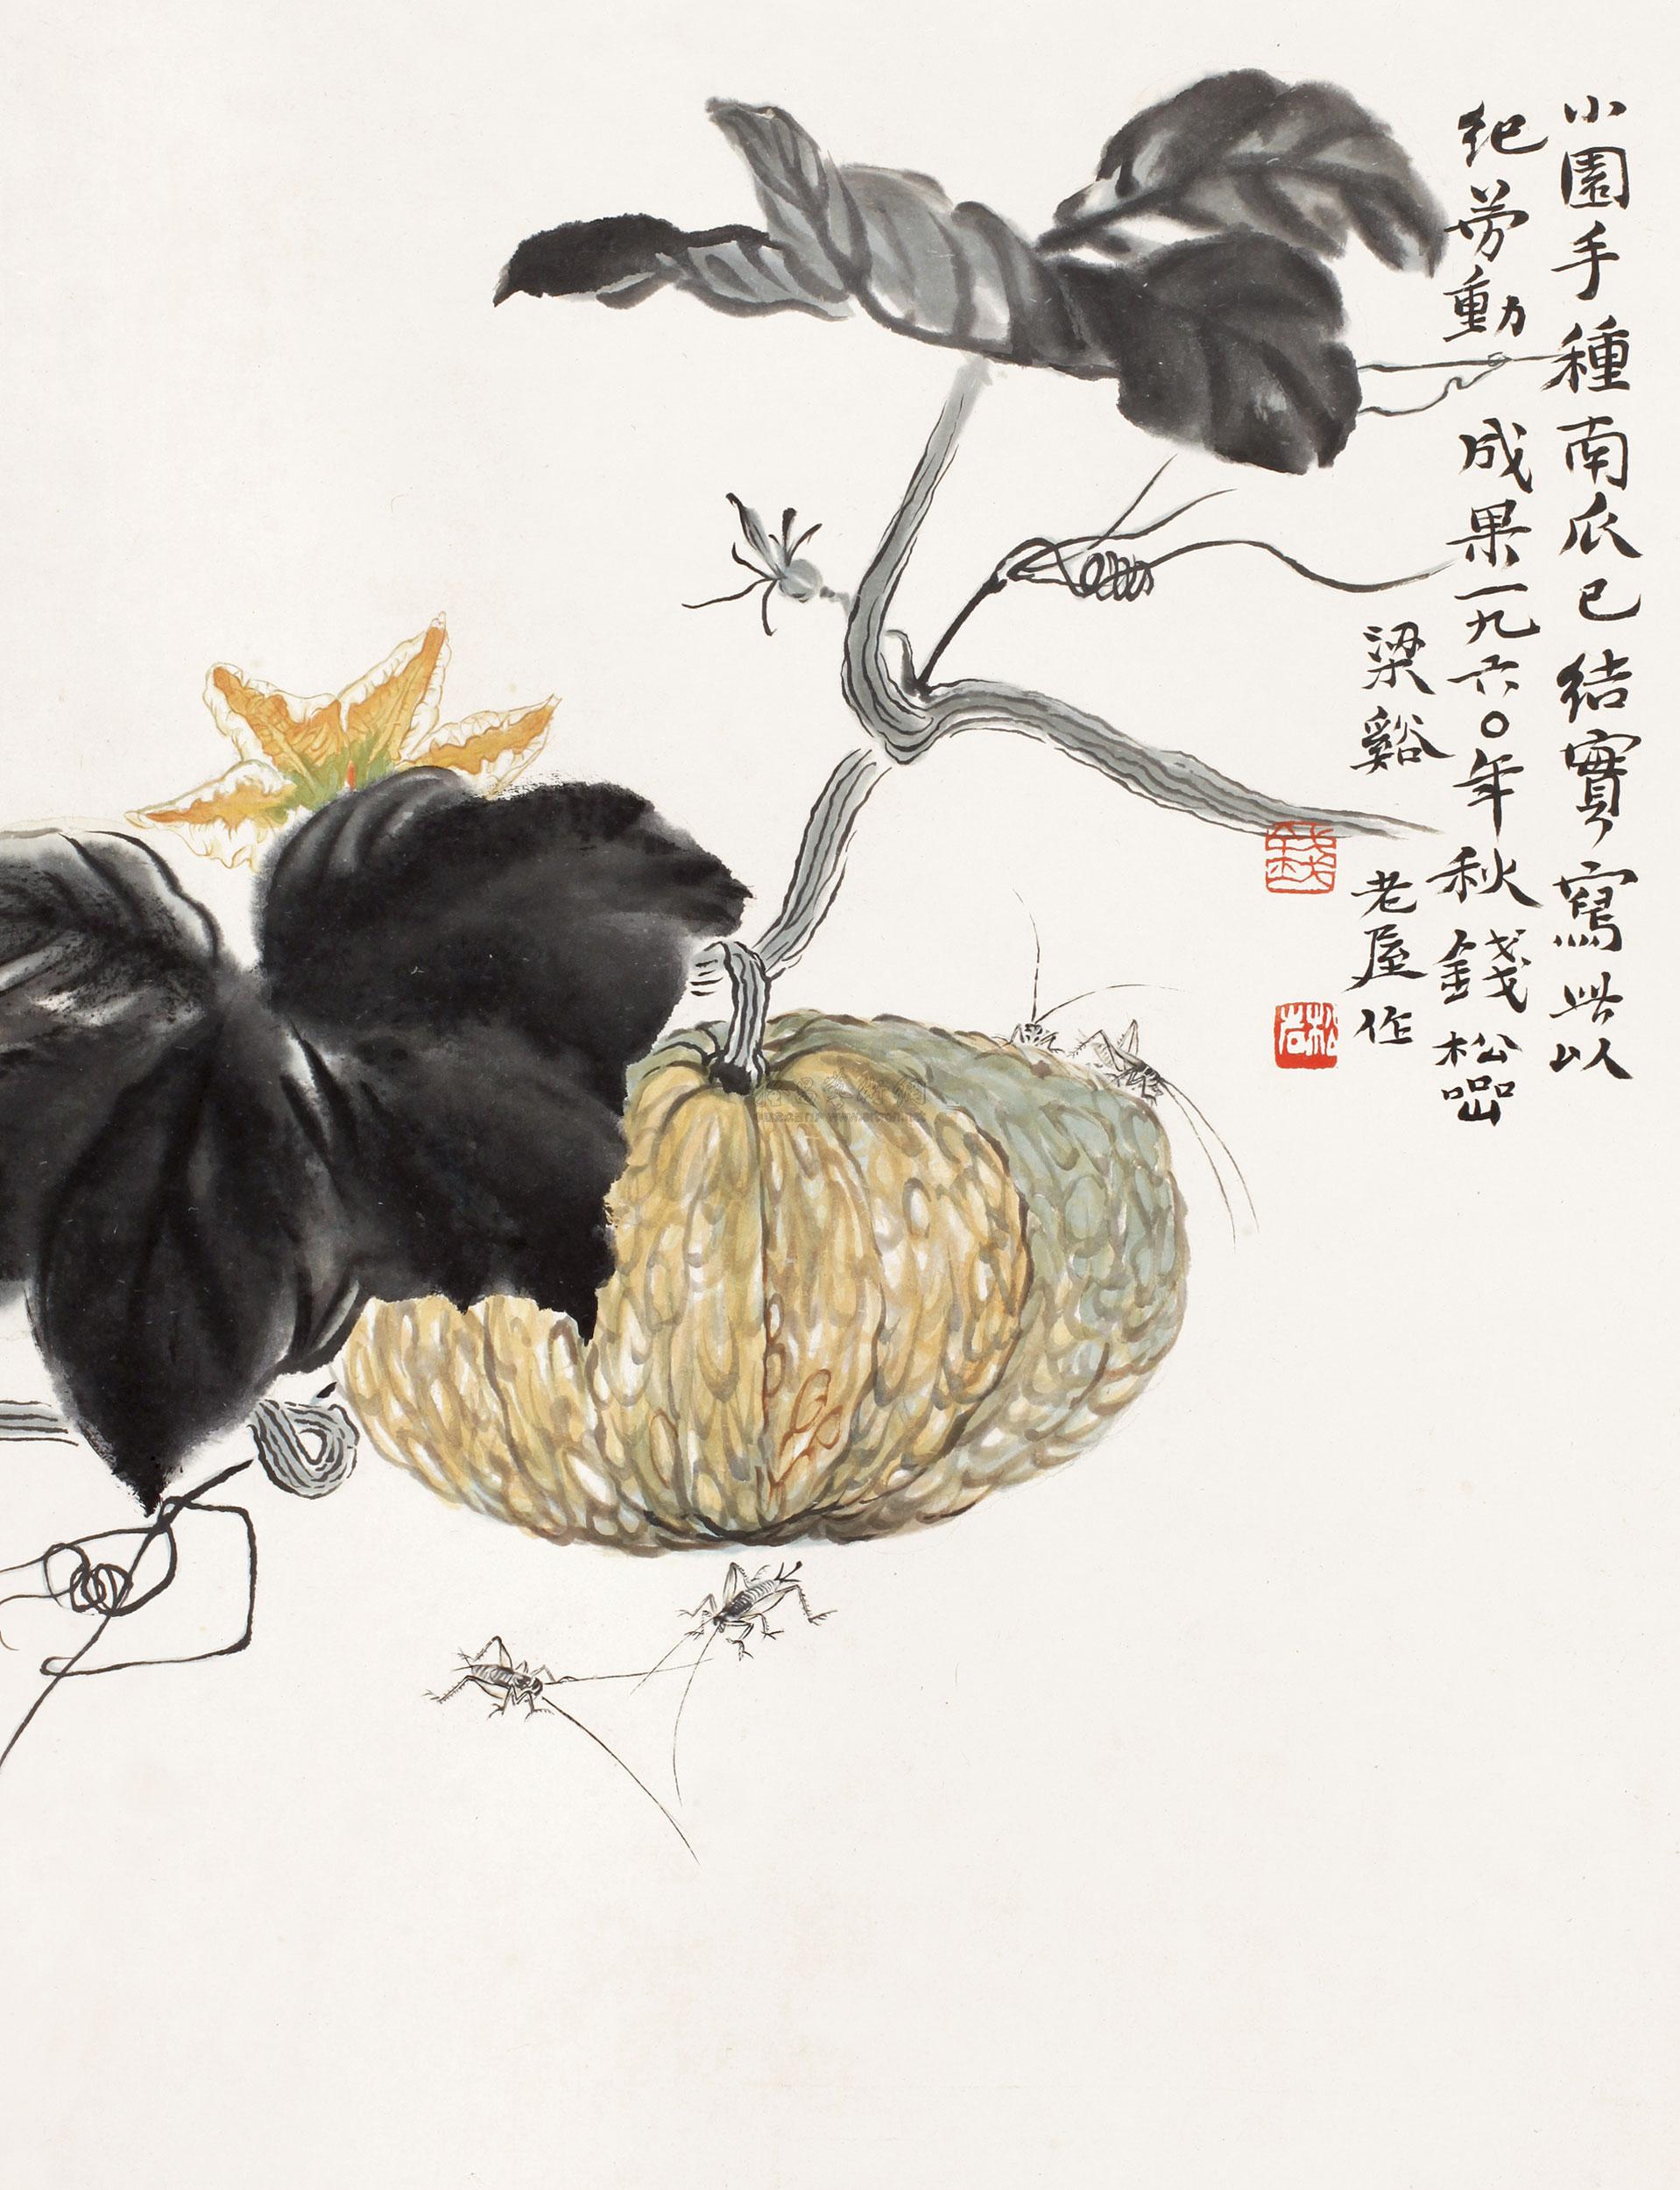 小園手種南瓜已結實寫此以
紀勞動成果一九六〇年秋錢松喦
梁谿老屋作
錢
松喦